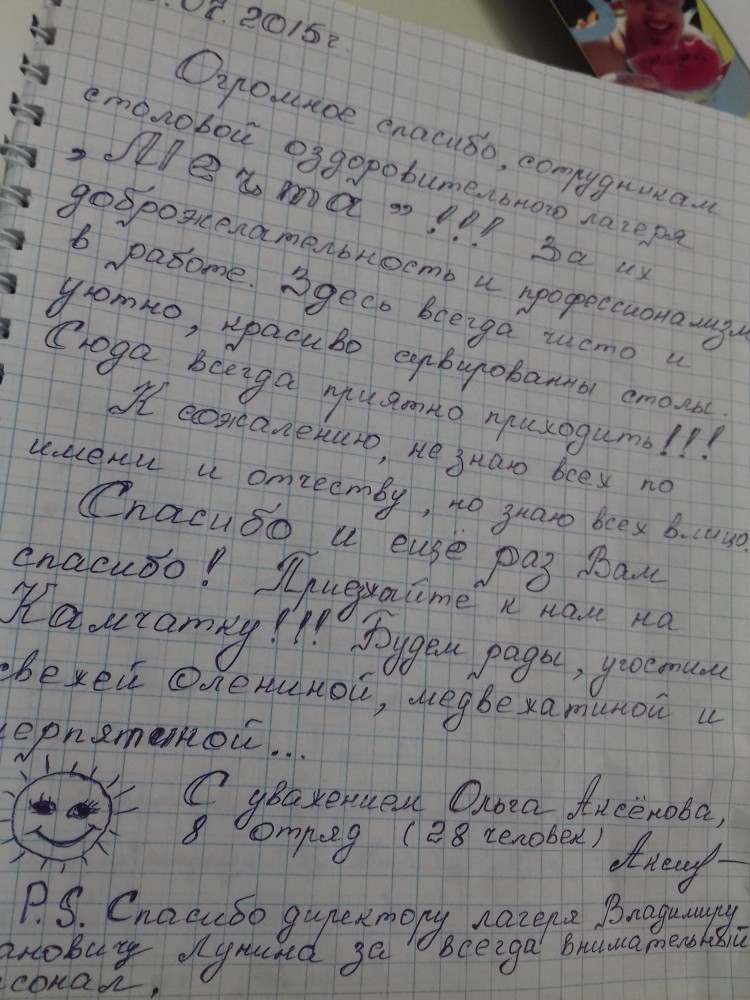 .07.2015г.
Огромное спасибо, сотрудникам
столовой оздоровительного лагеря
„Мечта”!!! За их
доброжелательность и профессионализм
в работе. Здесь всегда чисто и
уютно, красиво сервированны столы.
Сюда всегда приятно приходить!!!
К сожалению, не знаю всех по
имени и отчеству, но знаю всех в лицо.
Спасибо и ещё раз Вам
спасибо! Приезжайте к нам на
Камчатку!!! Будем рады, угостим
свежей олениной, медвежатиной и
...
С уважением Ольга Аксёнова,
8 отряд (28 человек)
P.S. Спасибо директору лагеря Владимиру
ановичу Лунина за всегда внимательный
сонал.